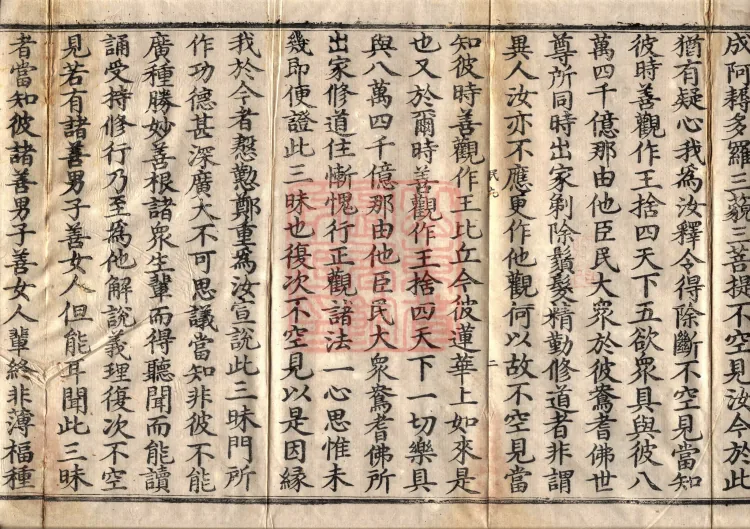 成阿耨多羅三藐三菩提不空見汝今於此
猶有疑心我為汝釋令得除斷不空見當知
彼時善觀作王捨四天下五欲眾具與彼八
萬四千億那由他臣民大眾於彼鴦耆佛世
尊所同時出家剃除鬚髮精勤修道者非謂
異人汝亦不應更作他觀何以故不空見當
知彼時善觀作王比丘今彼蓮華上如來是
也又於爾時善觀作王捨四天下一切樂具
與八萬四千億那由他臣民大眾鴦耆佛所
出家修道住慚愧行正觀諸法一心思惟未
幾即便證此三昧也復次不空見以是因緣
我於今者慇懃鄭重為汝宣說此三昧門所
作功德甚深廣大不可思議當知非彼不能
廣種勝妙善根諸眾生輩而得聽聞而能讀
誦受持修行乃至為他解說義理復次不空
見若有諸善男子善女人但能耳聞此三昧
者當知彼諸善男子善女人輩終非薄福種